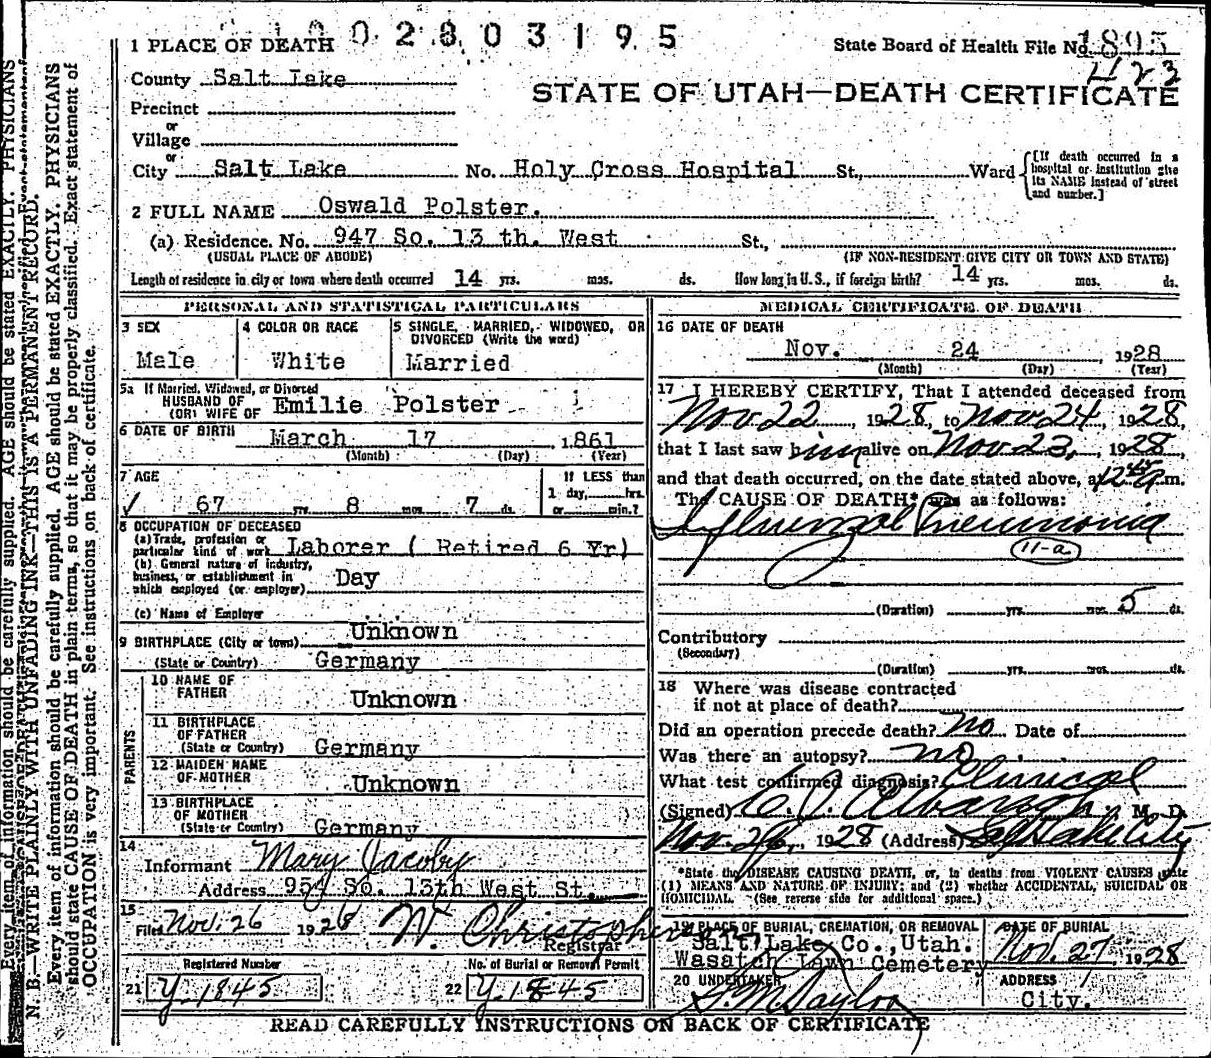 0 0 2 8 0 3 1 9 5
1 PLACE OF DEATH
State Board of Health File No. 1895
423
County Salt Lake
STATE OF UTAH—DEATH CERTIFICATE
Precinct
or
Village
or
City Salt Lake No. Holy Cross Hospital St., Ward
[If death occurred in a hospital or institution give its NAME instead of street and number.]
2 FULL NAME Oswald Polster.
(a) Residence. No. 947 So. 13 th. West St.,
(USUAL PLACE OF ABODE) (IF NON-RESIDENT GIVE CITY OR TOWN AND STATE)
Length of residence in city or town where death occurred 14 yrs. mos. ds. How long in U.S., if foreign birth? 14 yrs. mos. ds.
PERSONAL AND STATISTICAL PARTICULARS
3 SEX
Male
4 COLOR OR RACE
White
5 SINGLE, MARRIED, WIDOWED, OR
DIVORCED (Write the word)
Married
5a If Married, Widowed, or Divorced
HUSBAND OF
(OR) WIFE OF Emilie Polster
6 DATE OF BIRTH March 17 1861
(Month) (Day) (Year)
7 AGE
67 yrs. 8 mos. 7 ds.
If LESS than
1 day, hrs.
or min.?
8 OCCUPATION OF DECEASED
(a) Trade, profession or
particular kind of work Laborer ( Retired 6 Yr)
(b) General nature of industry,
business, or establishment in
which employed (or employer) Day
(c) Name of Employer
Unknown
9 BIRTHPLACE (City or town)
(State or Country) Germany
PARENTS
10 NAME OF
FATHER Unknown
11 BIRTHPLACE
OF FATHER
(State or Country) Germany
12 MAIDEN NAME
OF MOTHER Unknown
13 BIRTHPLACE
OF MOTHER
(State or Country) Germany
14
Informant Mary Jacoby
Address 954 So. 13th West St.
15
Filed Nov. 26 1928 W. Christopherson
Registrar
Registered Number
No. of Burial or Removal Permit
21 Y-1845
22 Y-1845
MEDICAL CERTIFICATE OF DEATH
16 DATE OF DEATH
Nov. 24 1928
(Month) (Day) (Year)
17 I HEREBY CERTIFY, That I attended deceased from
Nov 22 1928, to Nov 24, 1928,
that I last saw him alive on Nov 23, 1928,
and that death occurred, on the date stated above, at 12 45 a m.
The CAUSE OF DEATH* was as follows:
Influenzal Pneumonia
11-a
(Duration) yrs. mos. 5 ds.
Contributory
(Secondary)
(Duration) yrs. mos. ds.
18 Where was disease contracted
if not at place of death?
Did an operation precede death? No Date of
Was there an autopsy? no
What test confirmed diagnosis? Clinical
(Signed) M. D.
Nov. 26, 1928 (Address) Salt Lake City
*State the DISEASE CAUSING DEATH, or, in deaths from VIOLENT CAUSES state
(1) MEANS AND NATURE OF INJURY; and (2) whether ACCIDENTAL, SUICIDAL OR
HOMICIDAL. (See reverse side for additional space.)
19 PLACE OF BURIAL, CREMATION, OR REMOVAL
Salt Lake Co., Utah.
Wasatch Lawn Cemetery
DATE OF BURIAL
Nov. 27 1928
20 UNDERTAKER
ADDRESS
City.
READ CAREFULLY INSTRUCTIONS ON BACK OF CERTIFICATE
N. B.—WRITE PLAINLY WITH UNFADING INK—THIS IS A PERMANENT RECORD.
Every item of information should be carefully supplied. AGE should be stated EXACTLY. PHYSICIANS
should state CAUSE OF DEATH in plain terms, so that it may be properly classified. Exact statement of
OCCUPATION is very important. See instructions on back of certificate.
Every item of information should be carefully supplied. AGE should be stated EXACTLY. PHYSICIANS